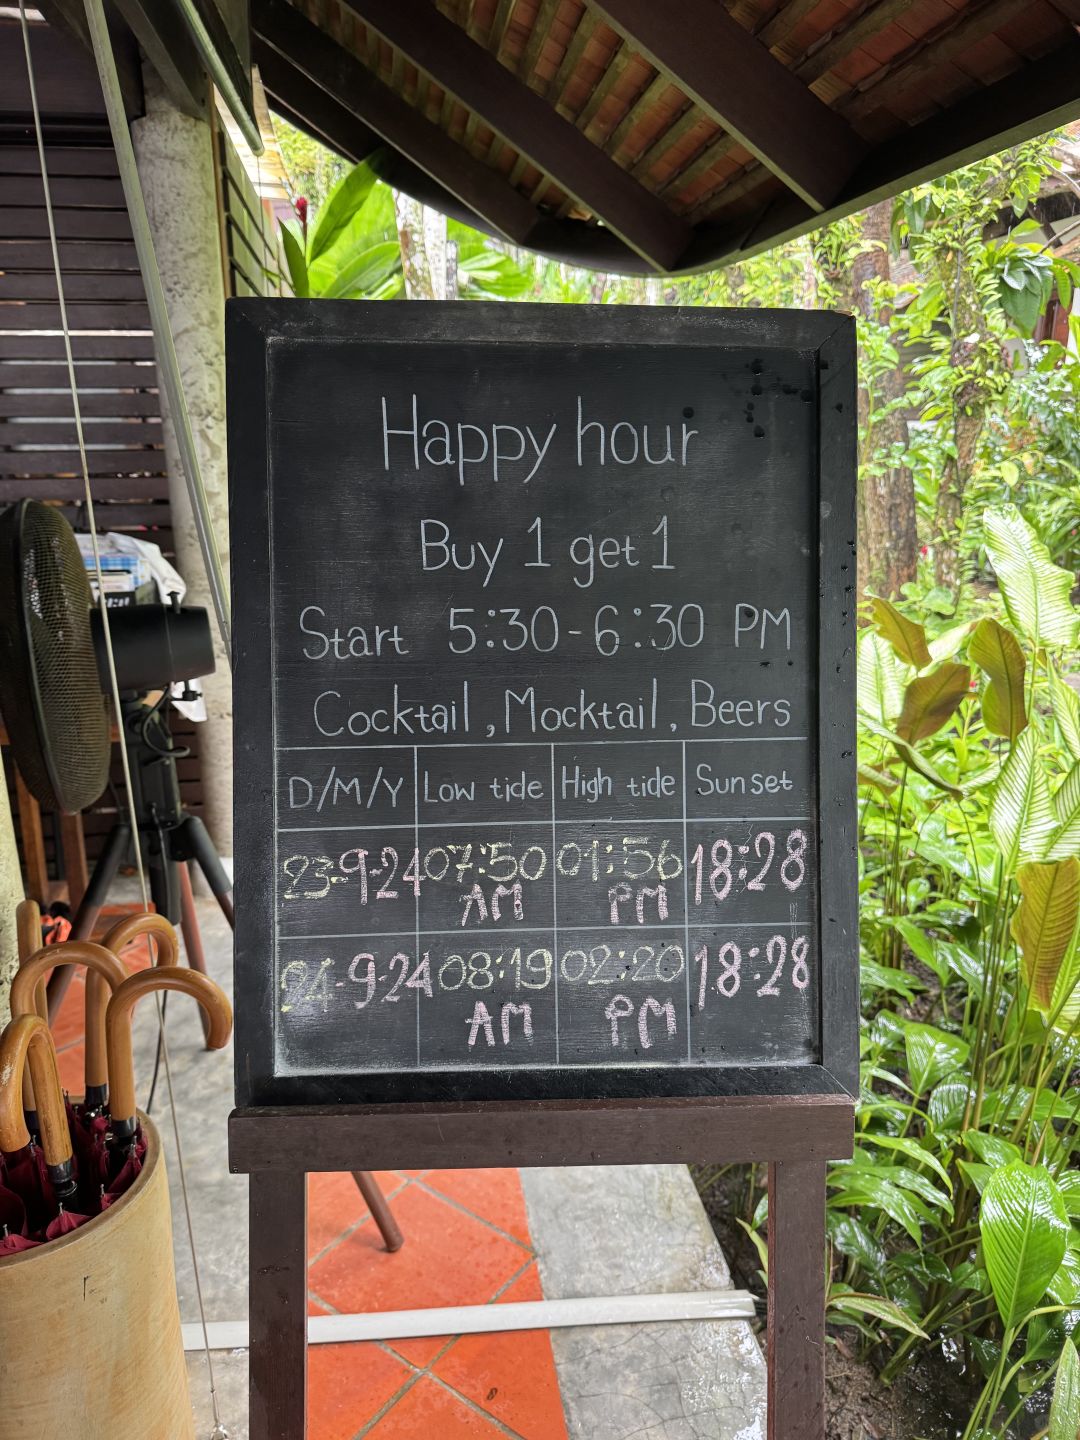 Happy hour
Buy 1 get 1
Start 5:30-6:30 PM
Cocktail, Mocktail, Beers
D/M/Y Low tide High tide Sunset
23-9-24 07:50 AM 01:56 PM 18:28
24-9-24 08:19 AM 02:20 PM 18:28